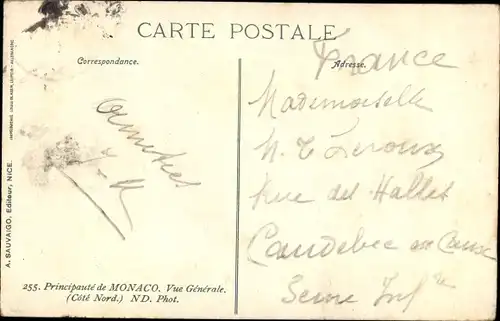 CARTE POSTALE
Correspondance.
Adresse.
France
Mademoiselle
Leroux
Rue des Halles
Caudebec en Caux
Seine Infre
Amitiés
255. Principauté de MONACO. Vue Générale.
(Côté Nord.) ND. Phot.
A. SAUVAIGO, Editeur, NICE.